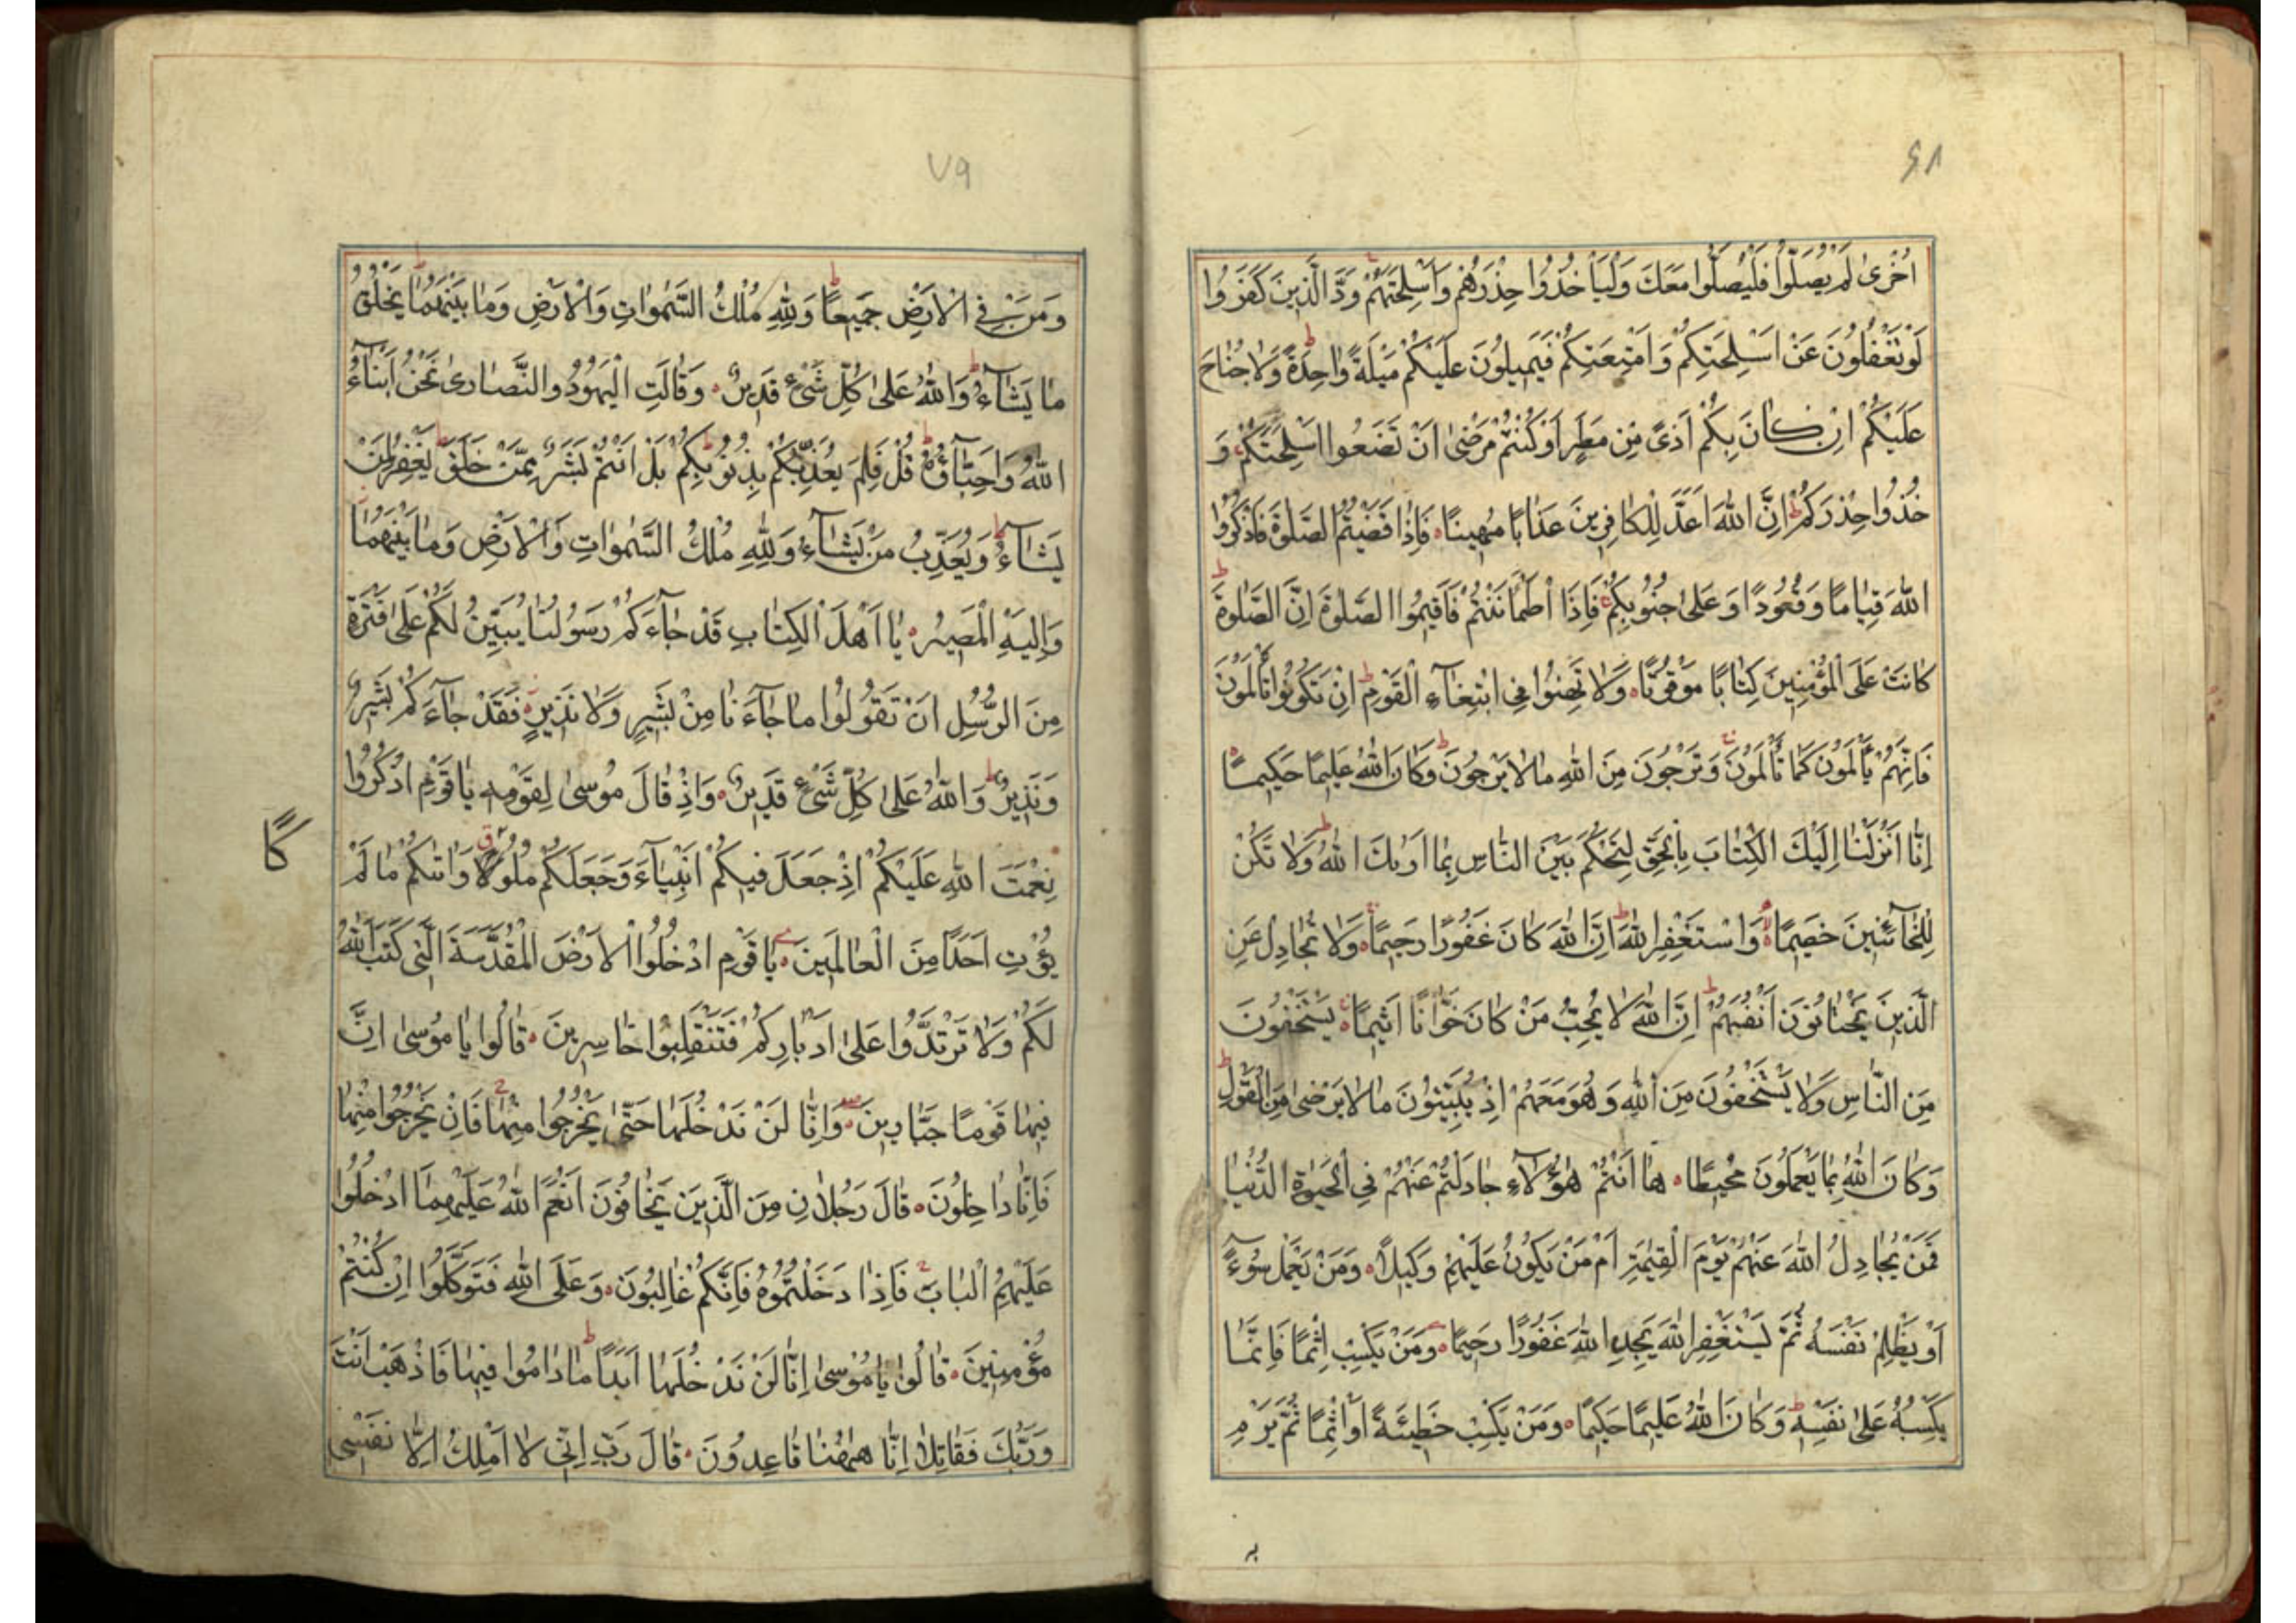 ٤٨
اُخْرىٰ لَمْ يُصَلُّوا فَلْيُصَلُّوا مَعَكَ وَلْيَأْخُذُوا حِذْرَهُمْ وَاَسْلِحَتَهُمْ وَدَّ الَّذِينَ كَفَرُوا
لَوْ تَغْفُلُونَ عَنْ اَسْلِحَتِكُمْ وَاَمْتِعَتِكُمْ فَيَمِيلُونَ عَلَيْكُمْ مَيْلَةً وَاحِدَةً وَلَا جُنَاحَ
عَلَيْكُمْ اِنْ كَانَ بِكُمْ اَذىً مِنْ مَطَرٍ اَوْ كُنْتُمْ مَرْضىٰ اَنْ تَضَعُوا اَسْلِحَتَكُمْ وَ
خُذُوا حِذْرَكُمْ اِنَّ اللّٰهَ اَعَدَّ لِلْكَافِرِينَ عَذَابًا مُهِينًا فَاِذَا قَضَيْتُمُ الصَّلٰوةَ فَاذْكُرُوا
اللّٰهَ قِيَامًا وَقُعُودًا وَعَلىٰ جُنُوبِكُمْ فَاِذَا اطْمَأْنَنْتُمْ فَاَقِيمُوا الصَّلٰوةَ اِنَّ الصَّلٰوةَ
كَانَتْ عَلَى الْمُؤْمِنِينَ كِتَابًا مَوْقُوتًا وَلَا تَهِنُوا فِي ابْتِغَآءِ الْقَوْمِ اِنْ تَكُونُوا تَأْلَمُونَ
فَاِنَّهُمْ يَأْلَمُونَ كَمَا تَأْلَمُونَ وَتَرْجُونَ مِنَ اللّٰهِ مَا لَا يَرْجُونَ وَكَانَ اللّٰهُ عَلِيمًا حَكِيمًا
اِنَّا اَنْزَلْنَا اِلَيْكَ الْكِتَابَ بِالْحَقِّ لِتَحْكُمَ بَيْنَ النَّاسِ بِمَا اَرٰىكَ اللّٰهُ وَلَا تَكُنْ
لِلْخَآئِنِينَ خَصِيمًا وَاسْتَغْفِرِ اللّٰهَ اِنَّ اللّٰهَ كَانَ غَفُورًا رَحِيمًا وَلَا تُجَادِلْ عَنِ
الَّذِينَ يَخْتَانُونَ اَنْفُسَهُمْ اِنَّ اللّٰهَ لَا يُحِبُّ مَنْ كَانَ خَوَّانًا اَثِيمًا يَسْتَخْفُونَ
مِنَ النَّاسِ وَلَا يَسْتَخْفُونَ مِنَ اللّٰهِ وَهُوَ مَعَهُمْ اِذْ يُبَيِّتُونَ مَا لَا يَرْضىٰ مِنَ الْقَوْلِ
وَكَانَ اللّٰهُ بِمَا يَعْمَلُونَ مُحِيطًا هَا اَنْتُمْ هٰؤُلَآءِ جَادَلْتُمْ عَنْهُمْ فِي الْحَيٰوةِ الدُّنْيَا
فَمَنْ يُجَادِلُ اللّٰهَ عَنْهُمْ يَوْمَ الْقِيٰمَةِ اَمْ مَنْ يَكُونُ عَلَيْهِمْ وَكِيلًا وَمَنْ يَعْمَلْ سُوٓءً
اَوْ يَظْلِمْ نَفْسَهُ ثُمَّ يَسْتَغْفِرِ اللّٰهَ يَجِدِ اللّٰهَ غَفُورًا رَحِيمًا وَمَنْ يَكْسِبْ اِثْمًا فَاِنَّمَا
يَكْسِبُهُ عَلىٰ نَفْسِهِ وَكَانَ اللّٰهُ عَلِيمًا حَكِيمًا وَمَنْ يَكْسِبْ خَطِيئَةً اَوْ اِثْمًا ثُمَّ يَرْمِ
٧٩
وَمَنْ فِي الْاَرْضِ جَمِيعًا وَلِلّٰهِ مُلْكُ السَّمٰوَاتِ وَالْاَرْضِ وَمَا بَيْنَهُمَا يَخْلُقُ
مَا يَشَآءُ وَاللّٰهُ عَلىٰ كُلِّ شَيْءٍ قَدِيرٌ وَقَالَتِ الْيَهُودُ وَالنَّصَارىٰ نَحْنُ اَبْنَآءُ
اللّٰهِ وَاَحِبَّآؤُهُ قُلْ فَلِمَ يُعَذِّبُكُمْ بِذُنُوبِكُمْ بَلْ اَنْتُمْ بَشَرٌ مِمَّنْ خَلَقَ يَغْفِرُ لِمَنْ
يَشَآءُ وَيُعَذِّبُ مَنْ يَشَآءُ وَلِلّٰهِ مُلْكُ السَّمٰوَاتِ وَالْاَرْضِ وَمَا بَيْنَهُمَا
وَاِلَيْهِ الْمَصِيرُ يَا اَهْلَ الْكِتَابِ قَدْ جَآءَكُمْ رَسُولُنَا يُبَيِّنُ لَكُمْ عَلىٰ فَتْرَةٍ
مِنَ الرُّسُلِ اَنْ تَقُولُوا مَا جَآءَنَا مِنْ بَشِيرٍ وَلَا نَذِيرٍ فَقَدْ جَآءَكُمْ بَشِيرٌ
وَنَذِيرٌ وَاللّٰهُ عَلىٰ كُلِّ شَيْءٍ قَدِيرٌ وَاِذْ قَالَ مُوسىٰ لِقَوْمِهِ يَا قَوْمِ اذْكُرُوا
نِعْمَتَ اللّٰهِ عَلَيْكُمْ اِذْ جَعَلَ فِيكُمْ اَنْبِيَآءَ وَجَعَلَكُمْ مُلُوكًا وَاٰتٰىكُمْ مَا لَمْ
كًا
يُؤْتِ اَحَدًا مِنَ الْعَالَمِينَ يَا قَوْمِ ادْخُلُوا الْاَرْضَ الْمُقَدَّسَةَ الَّتِي كَتَبَ اللّٰهُ
لَكُمْ وَلَا تَرْتَدُّوا عَلىٰ اَدْبَارِكُمْ فَتَنْقَلِبُوا خَاسِرِينَ قَالُوا يَا مُوسىٰ اِنَّ
فِيهَا قَوْمًا جَبَّارِينَ وَاِنَّا لَنْ نَدْخُلَهَا حَتّىٰ يَخْرُجُوا مِنْهَا فَاِنْ يَخْرُجُوا مِنْهَا
فَاِنَّا دَاخِلُونَ قَالَ رَجُلَانِ مِنَ الَّذِينَ يَخَافُونَ اَنْعَمَ اللّٰهُ عَلَيْهِمَا ادْخُلُوا
عَلَيْهِمُ الْبَابَ فَاِذَا دَخَلْتُمُوهُ فَاِنَّكُمْ غَالِبُونَ وَعَلَى اللّٰهِ فَتَوَكَّلُوا اِنْ كُنْتُمْ
مُؤْمِنِينَ قَالُوا يَا مُوسىٰ اِنَّا لَنْ نَدْخُلَهَا اَبَدًا مَا دَامُوا فِيهَا فَاذْهَبْ اَنْتَ
وَرَبُّكَ فَقَاتِلَا اِنَّا هٰهُنَا قَاعِدُونَ قَالَ رَبِّ اِنِّي لَا اَمْلِكُ اِلَّا نَفْسِي